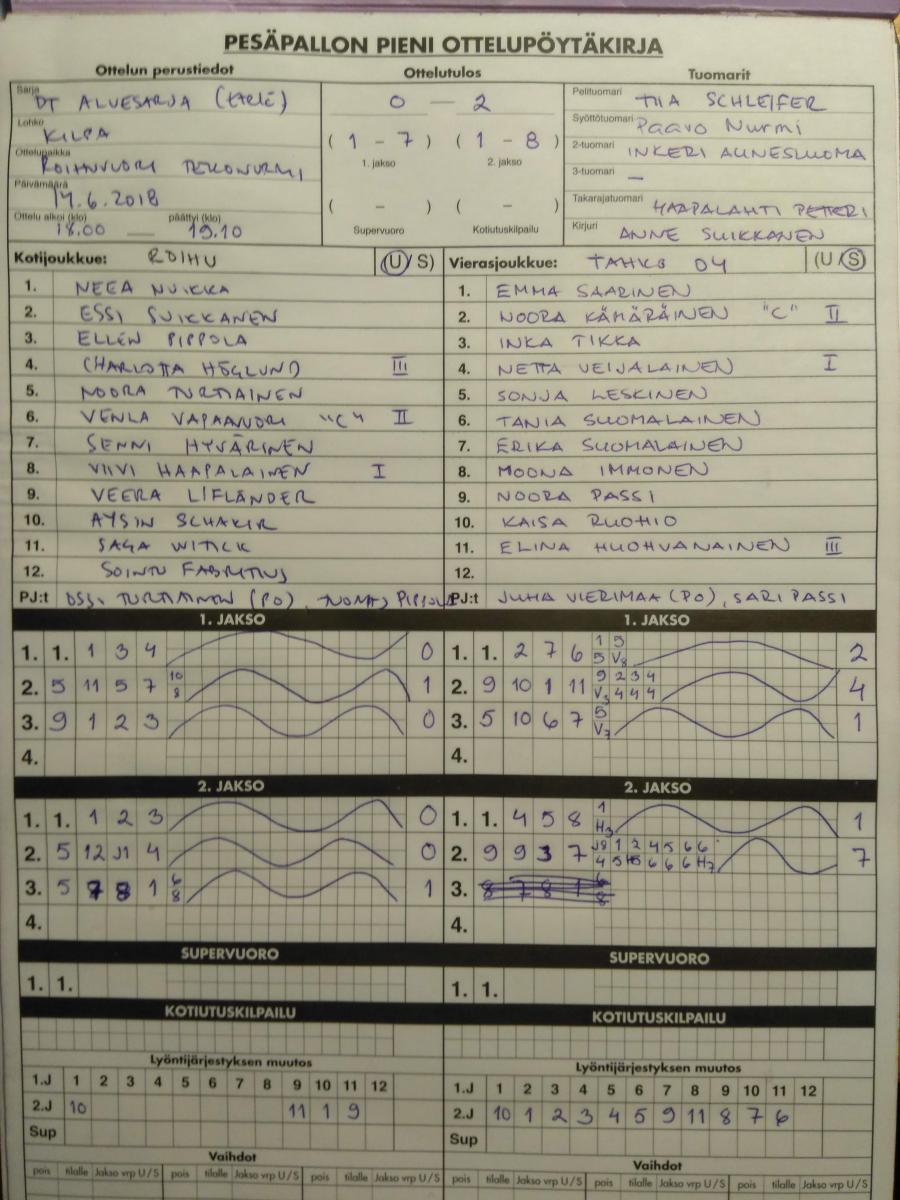 PESÄPALLON PIENI OTTELUPÖYTÄKIRJA
Ottelun perustiedot Ottelutulos Tuomarit
Sarja DT ALUESARJA
Lohko KILPA
Ottelupaikka ROIHUVUORI TEKONURMI
Päivämäärä 14.6.2018
Ottelu alkoi (klo) 18.00 — päättyi (klo) 19.10
0 — 2
( 1 - 7 ) ( 1 - 8 )
1. jakso 2. jakso
( - ) ( - )
Supervuoro Kotiutuskilpailu
Pelituomari TIIA SCHLEIFER
Syöttötuomari Paavo Nurmi
2-tuomari INKERI AUNESLUOMA
3-tuomari —
Takarajatuomari HAAPALAHTI PETTERI
Kirjuri ANNE SUIKKANEN
Kotijoukkue: ROIHU (U/S)
1. NEEA NUIKKA
2. ESSI SUIKKANEN
3. ELLEN PIPPOLA
4. CHARLOTTA HÖGLUND III
5. NOORA TURTIAINEN
6. VENLA VAPAANORI "C" II
7. SENNI HYVÄRINEN
8. VIIVI HAAPALAINEN I
9. VEERA LIFLÄNDER
10. AYSIN SCHAKIR
11. SAGA WITICK
12. SOINTU FABRITIUS
PJ:t TURTIAINEN (PO), TUOMAS PIPPOLA
Vierasjoukkue: TAHKO 04 (U/S)
1. EMMA SAARINEN
2. NOORA KÄMÄRÄINEN "C" II
3. INKA TIKKA
4. NETTA VEIJALAINEN I
5. SONJA LESKINEN
6. TANIA SUOMALAINEN
7. ERIKA SUOMALAINEN
8. MOONA IMMONEN
9. NOORA PASSI
10. KAISA RUOHIO
11. ELINA HUOHVANAINEN III
12.
PJ:t JUHA VIERIMAA (PO), SARI PASSI
1. JAKSO
1. 1. 1 3 4 0
2. 5 11 5 7 10 8 1
3. 9 1 2 3 0
4.
2. JAKSO
1. 1. 1 2 3 0
2. 5 12 11 4 0
3. 5 7 8 1 6 8 1
4.
SUPERVUORO
1. 1.
KOTIUTUSKILPAILU
Lyöntijärjestyksen muutos
1.J 1 2 3 4 5 6 7 8 9 10 11 12
2.J 10 11 1 9
Sup
Vaihdot
pois tilalle Jakso vrp U/S pois tilalle Jakso vrp U/S pois tilalle Jakso vrp U/S
1. JAKSO
1. 1. 2 7 6 1 5 2
5 V8
2. 9 10 1 11 9 2 3 4 4
V3 4 4 4
3. 5 10 6 7 5 1
V7
4.
2. JAKSO
1. 1. 4 5 8 1 1
H3
2. 9 9 3 7 1 2 4 5 6 6 7
3. 8 7 8 1 6 8
4.
SUPERVUORO
1. 1.
KOTIUTUSKILPAILU
Lyöntijärjestyksen muutos
1.J 1 2 3 4 5 6 7 8 9 10 11 12
2.J 10 1 2 3 4 5 9 11 8 7 6
Sup
Vaihdot
pois tilalle Jakso vrp U/S pois tilalle Jakso vrp U/S pois tilalle Jakso vrp U/S